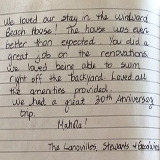 We loved our stay in the Windward
Beach House! The house was even
better than expected. You did a
great job on the renovations.
We loved being able to swim
right off the backyard. Loved all
the amenities provided.
We had a great 30th Anniversary
trip.
Mahalo!
The Canovilles, Stewarts &